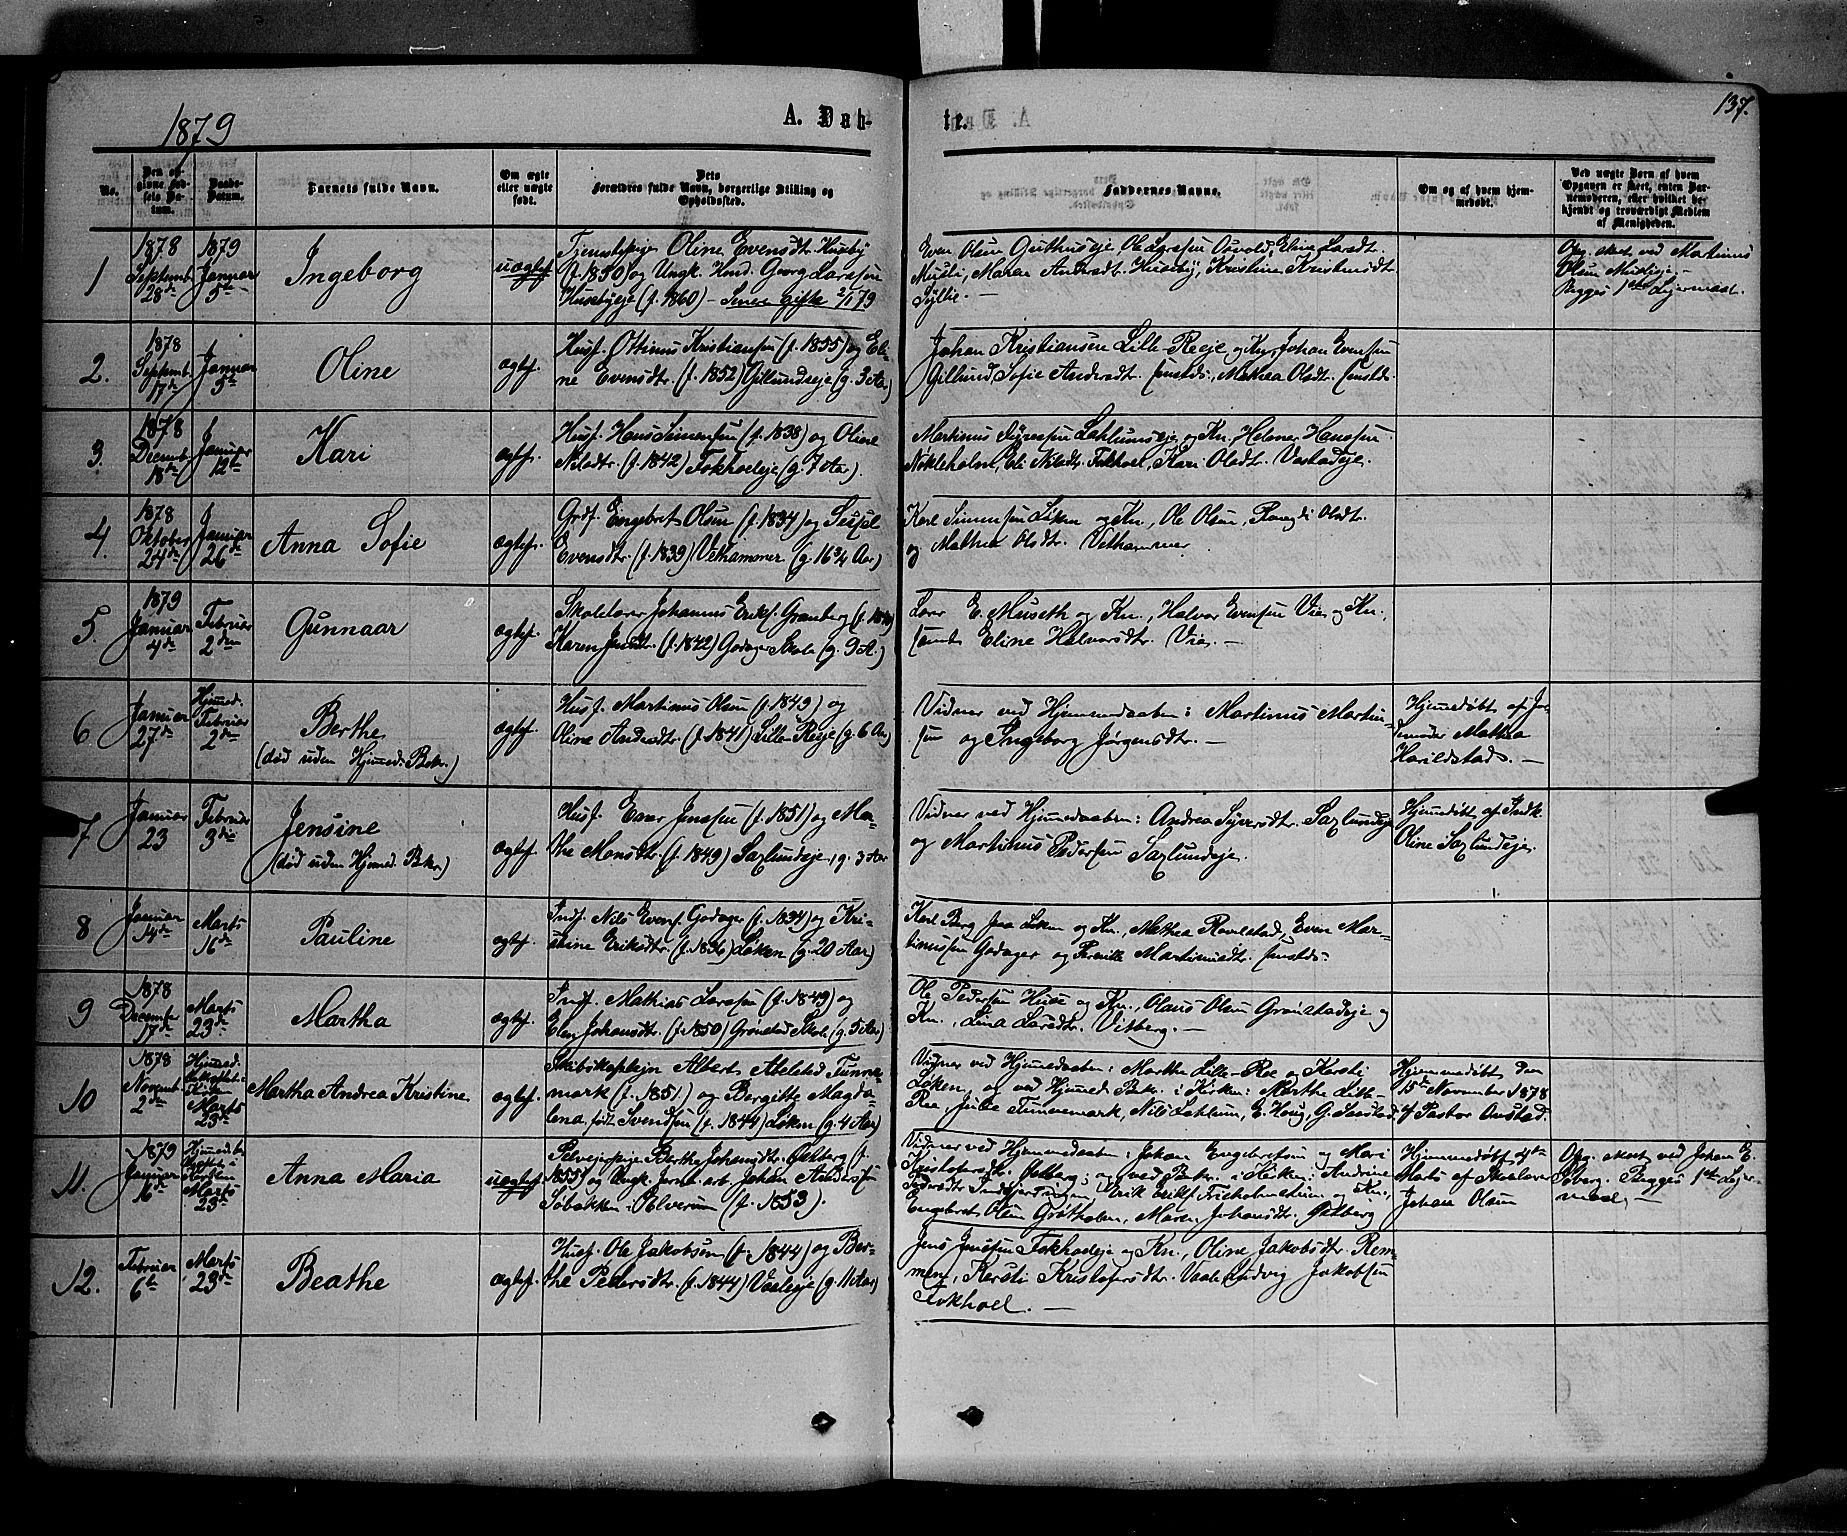 1879
A. Døb-
te.
137.
No.
Den opgivne Fødsels Datum.
Daabs-Datum.
Barnets fulde Navn.
Om ægte eller uægte født.
Dets Forældres fulde Navn, borgerlige Stilling og Opholdssted.
Faddernes Navne.
Om og af hvem hjemmedøbt.
Ved uægte Børn af hvem Opgaven er skeet, enten Barnemoderen, eller hvilket bekjendt og troværdigt Medlem af Menigheden.
1
1878
Septemb.
28de
1879
Januar
5te
Ingeborg
uægtef.
Tjenestepige Oline Evensdtr. Huseby
(f. 1850) og Ungk. Georg Larsen
Husebyeje (f. 1860) – Senere gifte 2/1 79
Even Olsen Ole Larsen Eline Larsdt.
Maren Andersdt. Huseby, Kristine Kristensdtr
Opg. skeet ved Martinus
Olsen
Begges 1ste Lejermaal.
2.
1878
Septemb.
17de
Januar
5te
Oline
ægtef.
Husf. Ottinus Kristiansen (f. 1855) og Eli-
ne Evensdtr. (f. 1852) Gillundseje (g. 3 Aar)
Johan Kristiansen Lille-Reeje og Kn., Johan Evensen
Gillund Sofie Andersdtr. Mathea Olsdtr.
3.
1878
Decemb.
18de
Januar
12te
Kari
ægtef.
Husf. Hans Simensen (f. 1838) og Oline
Nilsdtr. (f. 1842) Fokholeje (g. 7 Aar).
Martinus Lahlumseje og Kn., Helmer Hansen
Nøkleholm, Eli Nilsdtr. Fokhoel, Kari Olsdt.
4.
1878
Oktober
24de
Januar
26de
Anna Sofie
ægtef.
Grdf. Engebret Olsen (f. 1834) og Sessel
Evensdtr. (f. 1839) Vethammer (g. 16 3/4 Aar)
Karl Simensen Løken og Kn., Ole Olsen, Olsdt.
og Mathea Olsdtr. Vethammer
5.
1879
Januar
4de
Februar
2den
Gunnaar
ægtef.
Skolelærer Johannes Eriks. Granberg
Karen (f. 1842) Godager Skole (g. 9 A.)
Lærer E. Museth og Kn., Halvor Evensen Vie og Kn.,
samt Eline Halvorsdtr. Vie. –
6
Januar
27de
Hjemmed.
Februar
2de
Berthe
(død uden Hjemmed. Bekr.)
ægtef.
Husf. Martinus Olsen (f. 1849) og
Oline Andersdtr. (f. 1841) Lille Reeje (g. 6 Aar)
Vidner ved Hjemmedaaben: Martinus Martin-
sen og Ingeborg Jørgensdtr. –
Hjemmedøbt af Jor-
demoder Mathea
Harildstad. –
7
Januar
23
Februar
3die
Jensine
(død uden Hjemmed. Bekr.)
ægtef.
Husf. Enar Jensen (f. 1851) og Mar-
the Monsdtr. (f. 1849) Saxlundseje, g. 3 Aar
Vidner ved Hjemmedaaben: Andrea Syversdtr. Saxlundseje
og Martinus Pedersen Saxlundseje.
Hjemmedøbt af
Oline Saxlundseje.
8
Januar
14de
Marts
16de
Pauline
ægtef.
Indf. Nils Evens. Godager (f. 1834) og Kri-
stine Eriksdtr. (f. 1836) Løken (g. 20 Aar)
Karl Berg fra Løken og Kn., Mathea Even Mar-
tinussen Godager og Pernille Martinusdtr.
9
1878
December
17de
Marts
23de
Martha
ægtef.
Indf. Mathias Larsen (f. 1849) og
Elen Johansdtr. (f. 1850) Grønstad Skole (g. 5 Aar)
Ole Pedersen Huse og Kn., Olaus Olsen Grønstadeje og
Kn., Lina Larsdtr. Vitberg. –
10
1878
Novemb.
2de
Hjemmed.
Kirken
Marts
23de
Martha Andrea Kristine
ægtef.
Skibskaptejn Albert Abelsted Tunne-
mark (f. 1851) og Bergitte Magda-
lena, født Svendsen (f. 1844) Løken (g. 4 Aar)
Vidner ved Hjemmedaaben: Marthe Lille-Ree og Kersti
Løken, og ved Hjemmed. Bek. i Kirken: Marthe Lille-
Ree, Julie Tunnemark, Nils Lahlum, E. Houg, G. Saastad.
Hjemmedøbt den
15de November 1878
af Pastor Onstad.
11.
1879
Januar
16de
Kirken
Marts
23de
Anna Maria
uægtef.
Berthe Johansdtr. Østberg (f.
1855) og Ungk. Johan Andersen
Søbakken i Elverum (f. 1853).
Vidner ved Hjemmedaaben: Johan Engebretsen og Mari
Kristofersdtr. Østberg; og ved Bekr. i Kirken: Andrine
Pedersdtr. Erik Eriks. og Kn.,
Engebret Olsen Maren Johansdtr. Østberg
Hjemmedøbt 4de
Marts af Skolelærer
Johan Olsen
Opg. skeet ved Johan E.
Begges 1ste Lejer-
maal. –
12.
Februar
6te
Marts
23de
Beathe
ægtef.
Husf. Ole Jakobsen (f. 1844) og Ber-
the Pedersdtr. (f. 1844) Valseje (g. 11 Aar)
Jens Jensen Fokholeje og Kn., Oline Jakobsdtr. Rem-
men, Kersti Kristofersdtr. Vaale, Ludvig Jakobsen
Fokhoel. –